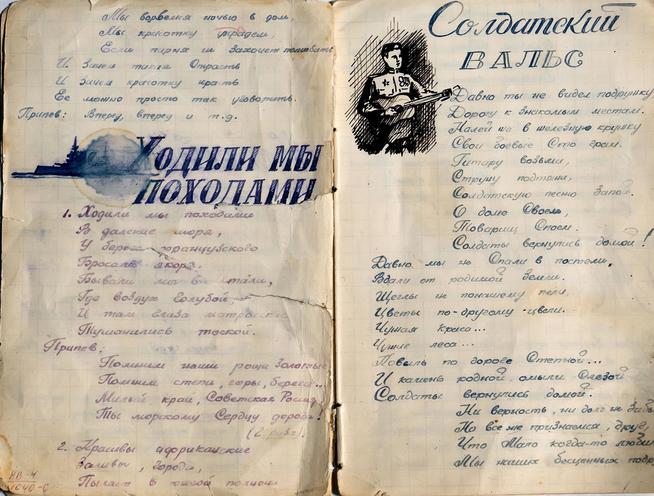 Мы ворвемся ночью в дом,
Мы красотку украдем,
Если парня не захочет полюбить
И Зачем такая Страсть
И Зачем красотку красть
Ее можно просто так уговорить.
Припев: Вперед, вперед и т.д.
ХОДИЛИ МЫ
ПОХОДАМИ
1. Ходили мы походами
В далекие моря,
У берега французского
Бросали якоря.
Бывали мы в
Где воздух голубой
И там глаза
Туманились тоской.
Припев:
Помним наши рощи Золотые
Помним степи, горы, берега...
Милый край, Советская
Ты морскому Сердцу дорог!
(2 раза).
2. Красивы африканские
Заливы, города,
Пылает в южной
НВ-4
Солдатский
ВАЛЬС
Давно ты не видел подружку
Дорогу к знакомым местам.
Налей же в железную кружку
Свои боевые Сто грам.
Гитару возьми,
Струну подтяни,
Солдатскую песню запой.
О доме Своем,
Товарищ Споем.
Солдаты вернулись домой!
Давно мы не Спали в постели,
Вдали от родимой Земли.
Щеглы не понашему пели,
Цветы по-другому цвели.
Чужая краса...
Чужие леса...
Ковыль по дороге Степной...
И камень родной, омыли Слезой
Солдаты вернулись домой.
Ни верность, ни долг не
Но все же признаемся,
Что Мало когда-то любили
Мы наших бесценных